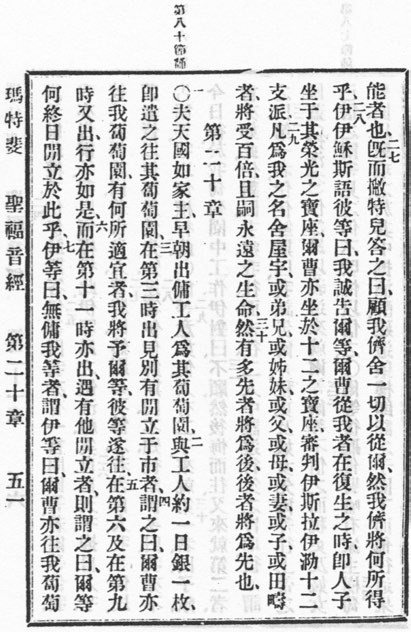 第八十節誦
能者也、二七旣而撇特兒答之曰、顧我儕舍一切以從爾、然我儕將何所得
乎、二八伊伊穌斯語彼等曰、我誠告爾等、爾曹從我者、在復生之時、卽人子
坐于其榮光之寶座、爾曹亦坐於十二之寶座、審判伊斯拉伊泐十二
支派、二九凡爲我之名、舍屋宇、或弟兄、或姊妹、或父、或母、或妻、或子、或田疇
者、將受百倍、且嗣永遠之生命、三十然有多先者將爲後、後者將爲先也、
第二十章
一〇夫天國如家主、早朝出傭工人爲其葡萄園、二與工人約一日銀一枚、
卽遣之往其葡萄園、三在第三時出、見別有閒立于市者、四謂之曰、爾曹亦
往我葡萄園、有何所適宜者、我將予爾等、彼等遂往、五在第六及在第九
時又出、行亦如是、六而在第十一時亦出、遇有他閒立者、則謂之曰、爾等
何終日閒立於此乎、七伊等曰、無傭我等者、謂伊等曰、爾曹亦往我葡萄
瑪特斐 聖福音經 第二十章 五一